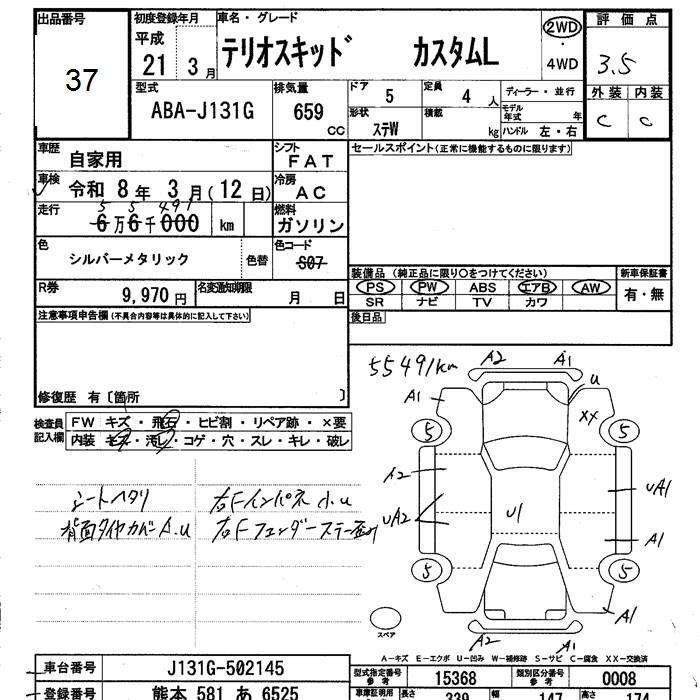 出品番号
37
初度登録年月
平成
21 3月
車名・グレード
テリオスキッド カスタムL
2WD
・
4WD
評価点
3.5
外装 内装
C C
型式
ABA-J131G
排気量
659
cc
ドア
5
定員
4 人
形状
ステW
積載
kg
ディーラー・並行
モデル年式 年
ハンドル 左・右
車歴 自家用
シフト
FAT
セールスポイント(正常に機能するものに限ります)
車検 令和 8年 3月(12日)
冷房
AC
走行
5 5 491
6万6千000 km
燃料
ガソリン
色
シルバーメタリック
色替
色コード
S07
R券
9,970円
名変通知期限
月 日
装備品 (純正品に限り○をつけてください)
PS PW ABS エアB AW
SR ナビ TV カワ
新車保証書
有・無
後日品
注意事項申告欄(不具合内容等は具体的に記入して下さい)
修復歴 有〔箇所 〕
検査員
記入欄
FW キズ・飛石・ヒビ割・リペア跡・×要
内装 キズ・汚レ・コゲ・穴・スレ・キレ・破レ
シートヘタリ
背面タイヤカバーA.U
右Fインパネ小.U
右Fフェンダーステー歪ミ
55491km
A2 A1
A1 U
XX
5 5
A2
UA1
UA2
U1
A1
5 5
A1
A2 A1
スペア
A-キズ E-エクボ U-凹み W-補修跡 S-サビ C-腐食 XX-交換済
車台番号 J131G-502145
登録番号 熊本 581 あ 6525
型式指定番号
参考
15368
類別区分番号
参考
0008
長さ 339 幅 147 高さ 174